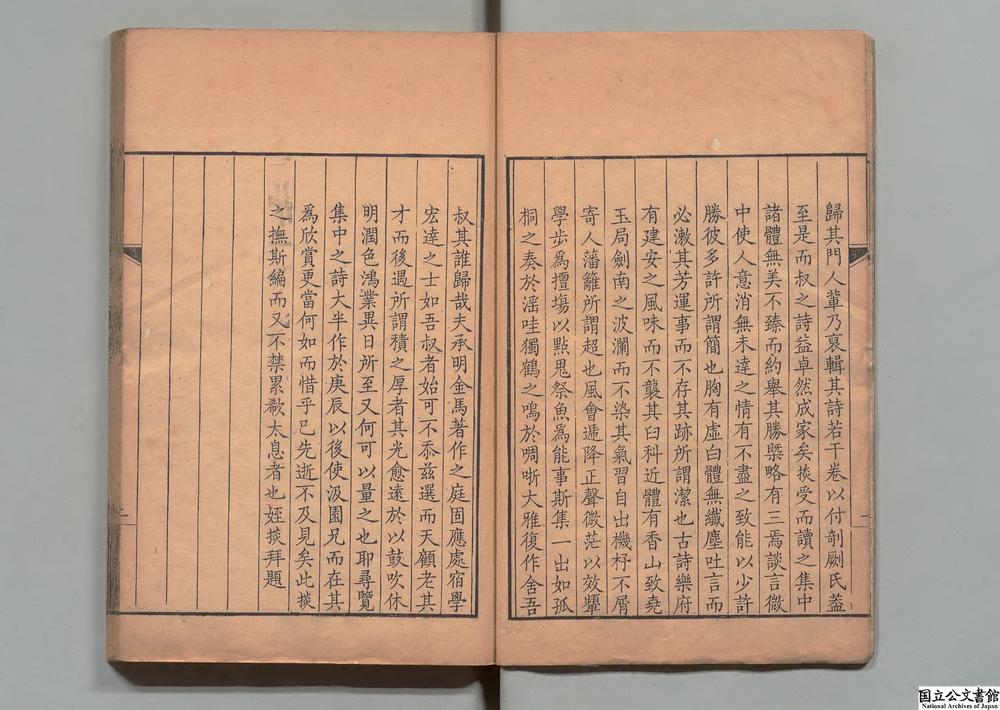 歸其門人輩乃裒輯其詩若干卷以付剞劂氏蓋
至是而叔之詩益卓然成家矣掞受而讀之集中
諸體無美不臻而約舉其勝槩略有三焉談言微
中使人意消無未達之情有不盡之致能以少許
勝彼多許所謂簡也胸有虛白體無纖塵吐言而
必漱其芳運事而不存其跡所謂潔也古詩樂府
有建安之風味而不襲其臼科近體有香山致堯
玉局劍南之波瀾而不染其氣習自出機杼不屑
寄人藩籬所謂超也風會遞降正聲微茫以效顰
學步為擅塲以點鬼祭魚為能事斯集一出如孤
桐之奏於滛哇獨鶴之鳴於啁哳大雅復作舍吾
叔其誰歸哉夫承明金馬著作之庭固應處宿學
宏達之士如吾叔者始可不忝兹選而天顧老其
才而後遇所謂積之厚者其光愈遠於以鼓吹休
明潤色鴻業異日所至又何可以量之也耶尋覽
集中之詩大半作於庚辰以後使汲園兄而在其
為欣賞更當何如而惜乎已先逝不及見矣此掞
之撫斯編而又不禁累欷太息者也姪掞拜題
国立公文書館
National Archives of Japan